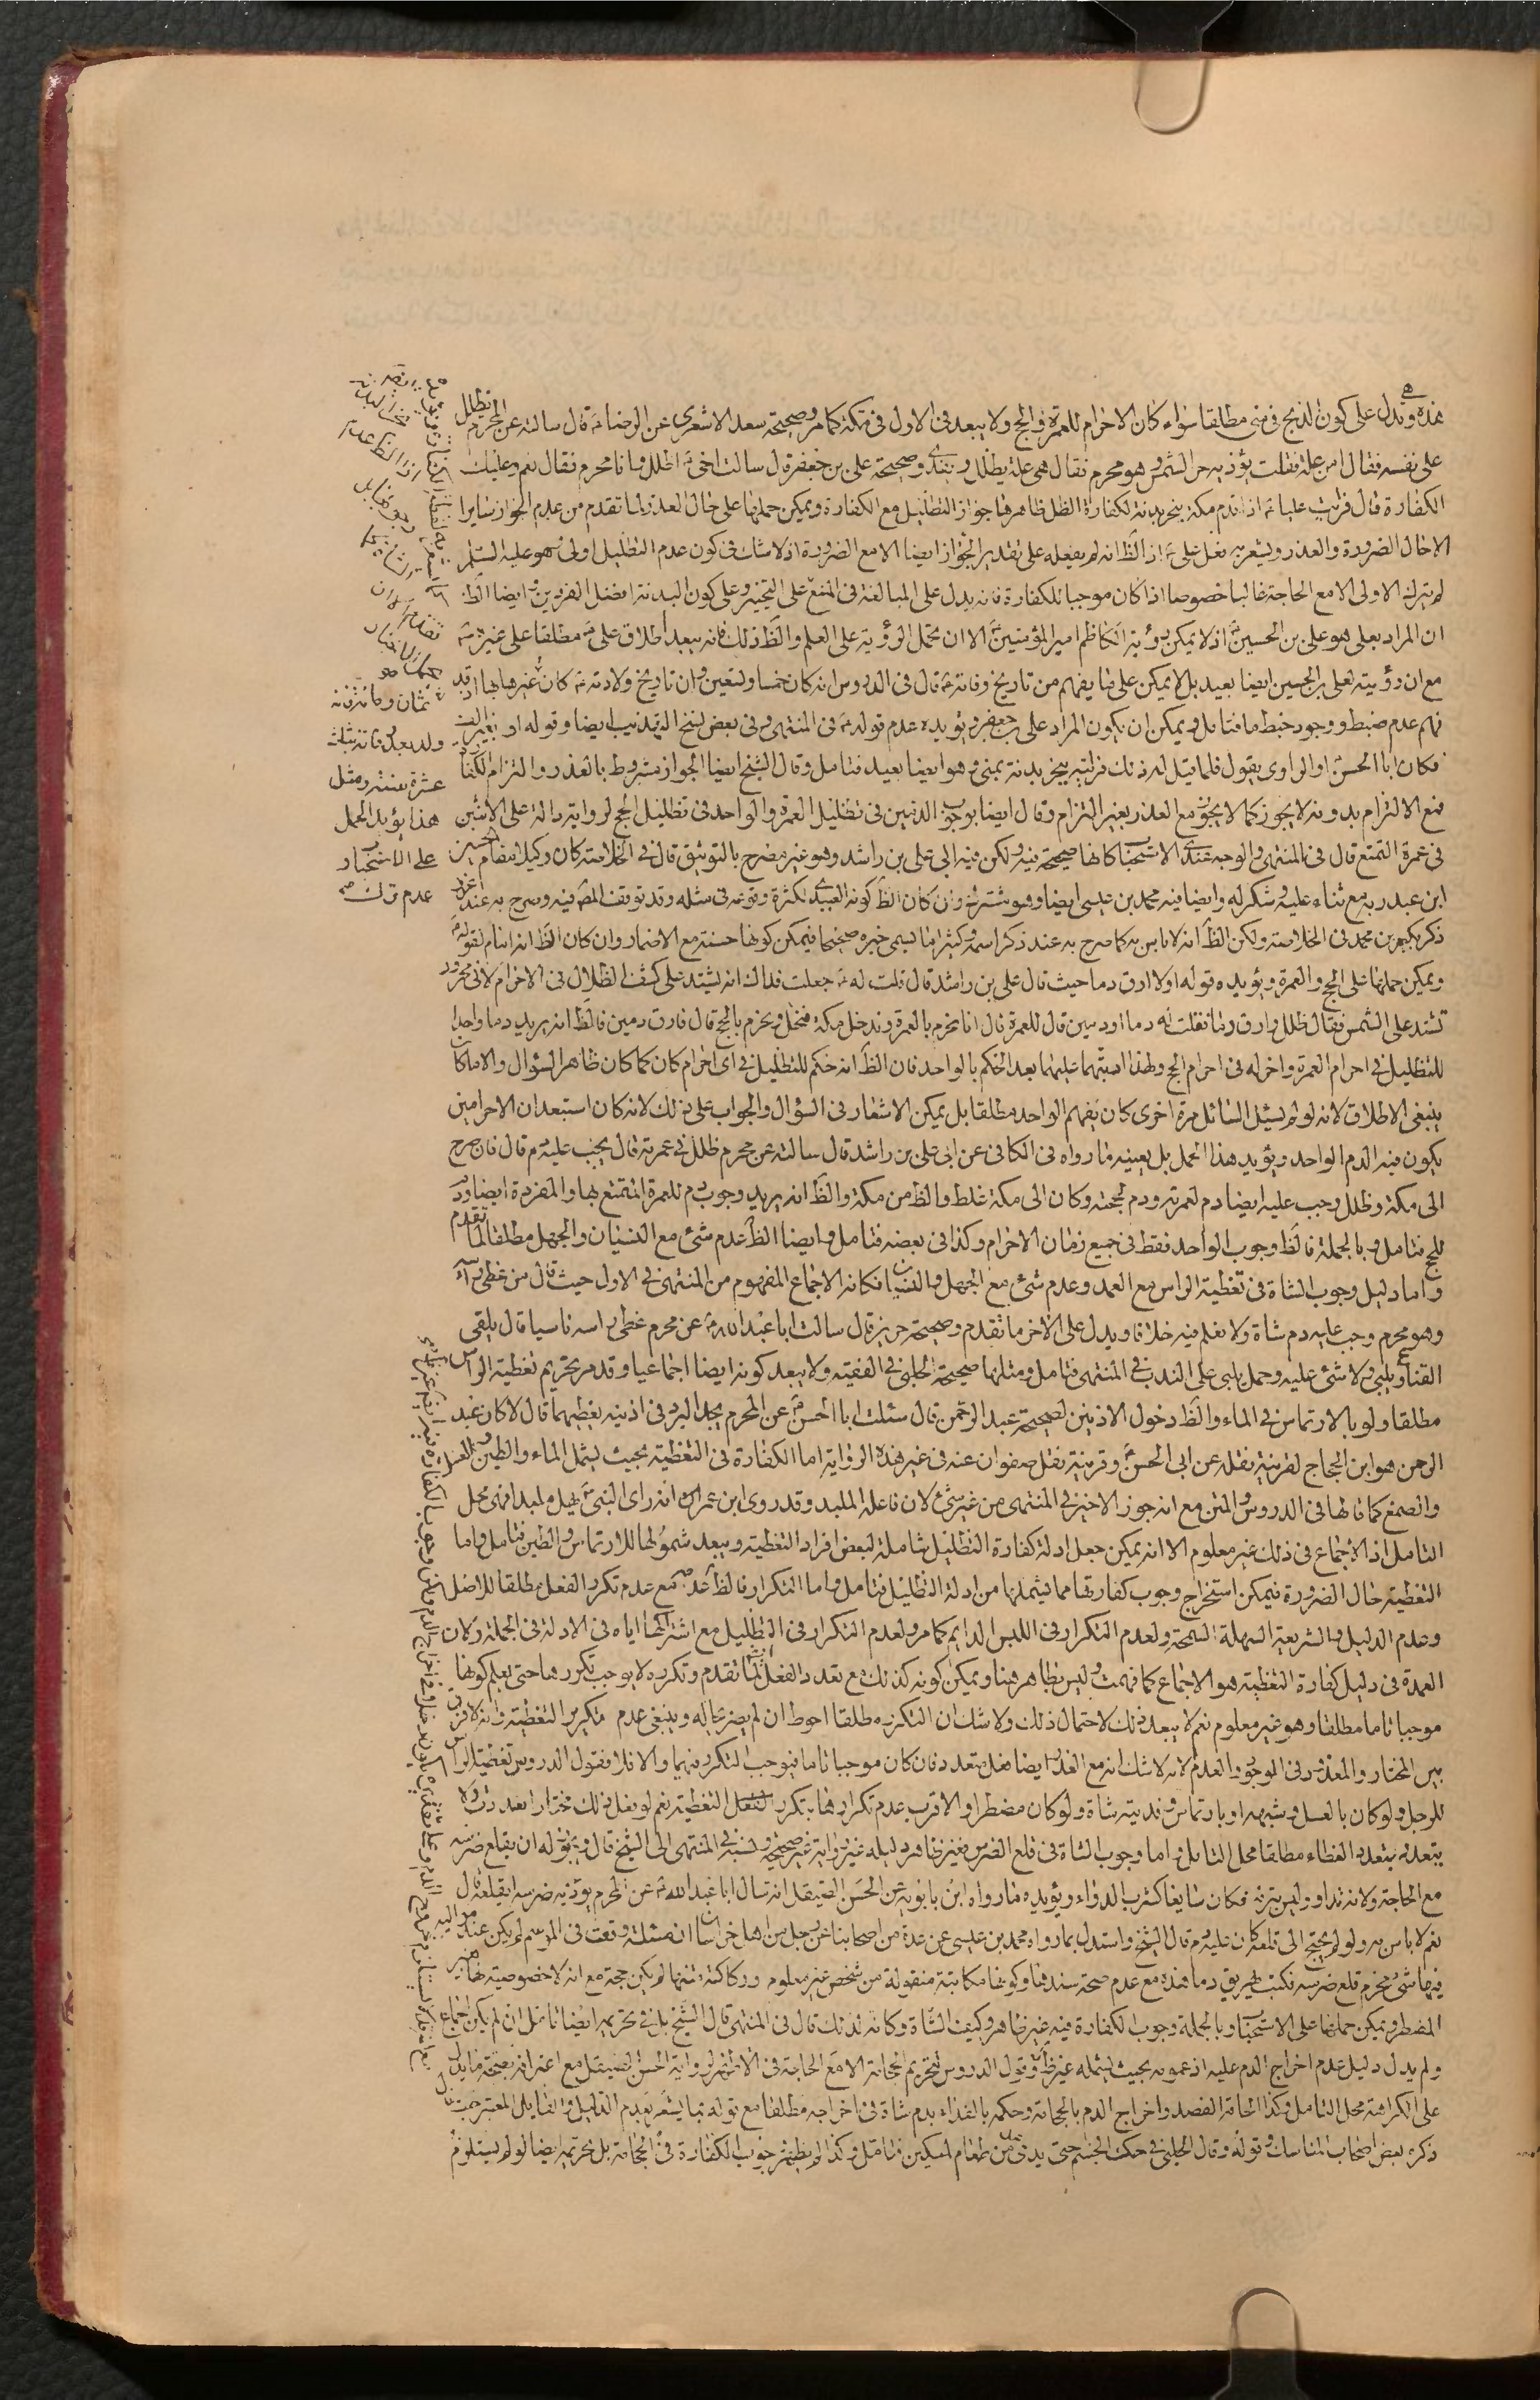 هذه وتدل على كون الذبح فى منى مطلقا سواء كان الاحرام للعمرة والحج ولا يبعد فى الاول فى مكة كما مر وصحيحة سعد الاشعرى عن الرضا ع قال سالته عن المحرم يظلل
على نفسه فقال امن علة فقلت يؤذيه حر الشمس وهو محرم فقال هى علة يظلل ويفدى وصحيحة على بن جعفر قال سالت اخى ع اظلل وانا محرم فقال نعم وعليك
الكفارة قال فرايت عليا ع اذا قدم مكة ينحر بدنة لكفارة الظل ظاهرها جواز التظليل مع الكفارة ويمكن حملها على حال العذر لما تقدم من عدم الجواز سايرا
الا حال الضرورة والعذر ويشعر به فعل على ع اذ الظ انه لم يفعله على تقدير الجواز ايضا الا مع الضرورة اذ لا شك فى كون عدم التظليل اولى وهو عليه السلم
لم يترك الاولى الا مع الحاجة غالبا خصوصا اذا كان موجبا للكفارة فانه يدل على المبالغة فى المنع على التخيير وعلى كون البدنة افضل الفردين ايضا الظ
ان المراد بعلى هو على بن الحسين ع اذ لا يمكن رؤية الكاظم امير المؤمنين ع الا ان تحمل الرؤية على العلم والظ ذلك فانه يبعد اطلاق على ع مطلقا على غيره ع
مع ان رؤيته لعلى بن الحسين ايضا بعيد بل لا يمكن على ما يفهم من تاريخ وفاته ع قال فى الدروس انه كان خمسا وتسعين وان تاريخ ولادته ع كان
فهم عدم ضبط ووجود خبط ما فتامل ويمكن ان يكون المراد على بن جعفر ويؤيده عدم قوله ع فى المنتهى وفى بعض نسخ التهذيب ايضا وقوله او
فكان ابا الحسن او الراوى يقول فلما قيل له ذلك فرايته ينحر بدنة بمنى وهو ايضا بعيد فتامل وقال الشيخ ايضا الجواز مشروط بالعذر والتزام الكفا
فمع الالتزام بدونه لا يجوز كما لا يجوز مع العذر بغير التزام وقال ايضا بوجوب الدمين فى تظليل العمرة والواحد فى تظليل الحج لرواية دالة على الاثنين
فى عمرة التمتع قال فى المنتهى والوجه عندى الاستحباب كانها صحيحة فيه ولكن فيه ابى على بن راشد وهو غير مصرح بالتوثيق قال فى الخلاصة كان وكيلا مقام الحسين
ابن عبد ربه مع ثناء عليه وشكر له وايضا فيه محمد بن عيسى ايضا وهو مشترك وان كان الظ كونه العبيدى لكثرة وقوعه فى مثله وقد توقف المص فيه وصرح به عند
ذكر بكير بن محمد فى الخلاصة ولكن الظ انه لا باس به كما صرح به عند ذكر اسمه وكثيرا ما يسمى خبره صحيحا فيمكن كونها حسنة مع الاضمار وان كان الظ انه امام لقوله ع
ويمكن حملها على الحج والعمرة ويؤيده قوله اولا ارق دما حيث قال على بن راشد قال قلت له ع جعلت فداك انه يشتد على كشف الظلال فى الاحرام لانى محرور
تشتد على الشمس فقال ظلل وارق دما فقلت له دما او دمين قال للعمرة قال انا نحرم بالعمرة وندخل مكة فنحل ونحرم بالحج قال فارق دمين فالظ انه يريد دما واحدا
للتظليل فى احرام العمرة واخر له فى احرام الحج ولهذا عليهما بعد الحكم بالواحد فان الظ انه حكم للتظليل فى اى احرام كان كما كان ظاهر السؤال والا ما كا
ينبغى الاطلاق لانه لو لم يسئل السائل مرة اخرى كان يفهم الواحد مطلقا بل يمكن الاشعار فى السؤال والجواب على ذلك لانه كان استبعد ان الاحرامين
يكون فيه الدم الواحد ويؤيد هذا الحمل بل يعينه ما رواه فى الكافى عن ابى على بن راشد قال سالته عن محرم ظلل فى عمرته قال يجب عليه دم قال فان خرج
الى مكة وظلل وجب عليه ايضا دم لعمرته ودم لحجته وكان الى مكة غلط والظ من مكة والظ انه يريد وجوب دم للعمرة المتمتع بها والمفردة ايضا ودم
للحج فتامل وبالجملة فالظ وجوب الواحد فقط فى جميع زمان الاحرام وكذا فى بعضه فتامل وايضا الظ عدم شئ مع النسيان والجهل مطلقا لما تقدم
واما دليل وجوب الشاة فى تغطية الراس مع العمد وعدم شئ مع الجهل والنسيان فكانه الاجماع المفهوم من المنتهى فى الاول حيث قال من غطى راسه
وهو محرم وجب عليه دم شاة ولا نعلم فيه خلافا ويدل على الاخر ما تقدم وصحيحة حريز قال سالت ابا عبد الله ع عن محرم غطى راسه ناسيا قال يلقى
القناع ويلبى ولا شئ عليه وحمل يلبى على الندب فى المنتهى فتامل ومثلها صحيحة الحلبى فى الفقيه ولا يبعد كونه ايضا اجماعيا وقد مر تحريم تغطية الراس
مطلقا ولو بالارتماس فى الماء والظ دخول الاذنين لصحيحة عبد الرحمن قال سئلت ابا الحسن ع عن المحرم يجد البرد فى اذنيه يغطيهما قال لا كان عبد
الرحمن هو ابن الحجاج لقرينة نقله عن ابى الحسن ع وقرينة نقل صفوان عنه فى غير هذه الرواية اما الكفارة فى التغطية بحيث يشمل الماء والطين والغسل
والصمغ كما قالها فى الدروس والمتن مع انه جوز الاخير فى المنتهى من غير شئ لان فاعله الملبد وقد روى ابن عمر انه راى النبى ص يهل ملبدا فهى محل
التامل اذ الاجماع فى ذلك غير معلوم الا انه يمكن جعل ادلة كفارة التظليل شاملة لبعض افراد التغطية ويبعد شمولها للارتماس والطين فتامل واما
التغطية حال الضرورة فيمكن استخراج وجوب كفارتها مما يشملها من ادلة التظليل فتامل واما التكرار فالظ عدمه مع عدم تكرر الفعل مطلقا للاصل
وعدم الدليل والشريعة السهلة السمحة ولعدم التكرار فى اللبس الدايم كما مر ولعدم التكرار فى التظليل مع اشتراكها اياه فى الادلة فى الجملة ولان
العمدة فى دليل كفارة التغطية هو الاجماع كما فهمت وليس بظاهر هنا ويمكن كونه كذلك مع تعدد الفعل لما تقدم وتكرره لا يوجب تكررها حتى يعلم كونها
موجبا تاما مطلقا وهو غير معلوم نعم لا يبعد ذلك لاحتمال ذلك ولا شك ان التكرر مطلقا احوط ان لم يضر بحاله وينبغى عدم تكرير التغطية وانه لا فرق
بين المختار والمعذور فى الوجود والعدم لانه لا شك انه مع العذر ايضا فعل متعدد فان كان موجبا تاما فيوجب التكرر فيهما والا فلا فقول الدروس
للرجل ولو كان بالغسل وشبهه او بارتماس وفديته شاة ولو كان مضطرا والاقرب عدم تكرارها بتكرر التغطية نعم لو فعل ذلك مختارا تعددت ولا
يتعدد بتعدد الغطاء مطلقا محل التامل واما وجوب الشاة فى قلع الضرس فغير ظاهر دليله غير رواية غير صحيحة ونسبه فى المنتهى الى الشيخ قال ويجوز له ان يقلع ضرسه
مع الحاجة ولانه تداوى وليس بترفه فكان سايغا كشرب الدواء ويؤيده ما رواه ابن بابويه عن الحسن الصيقل انه سال ابا عبد الله ع عن المحرم يؤذيه ضرسه ايقلعه قال
نعم لا باس به ولو لم يحتج الى قلعه كان عليه دم قال الشيخ واستدل بما رواه محمد بن عيسى عن عدة من اصحابنا عن رجل من اهل خراسان ان مسئلة وقعت فى الموسم لم يكن عند مواليه
فيها شئ محرم قلع ضرسه فكتب يهريق دما هذه مع عدم صحة سندها وكونها مكاتبة منقولة من شخص غير معلوم وركاكة متنها لم يكن حجة مع انه لا خصوصية لها بغير
المضطر ويمكن حملها على الاستحباب وبالجملة وجوب الكفارة فيه غير ظاهر وكيف الشاة وكانه لذلك قال فى المنتهى قال الشيخ بل فى تحريمه ايضا تامل ان لم يكن اجماع
ولم يدل دليل عدم اخراج الدم عليه اذ عمومه بحيث يشمله غير ظ وقول الدروس تحريم الحجامة الا مع الحاجة فى الاشهر لرواية الحسن الصيقل مع اعترافه بصحة ما يدل
على الكراهة محل التامل وكذا الحاقه الفصد واخراج الدم بالحجامة وحكمه بالفداء بدم شاة فى اخراجه مطلقا مع قوله بما يشعر بعدم الدليل والقايل المعتبر حيث قال
ذكره بعض اصحاب المناسك وقوله وقال الحلبى فى حك الجسم حتى يدمى من طعام لمسكين فتامل وكذا لم يظهر وجوب الكفارة فى الحجامة بل تحريمه ايضا لو لم يستلزم
ثمان وثلثين
ولد بعد وفاته بثلث
عشرة سنة ومثل
هذا يؤيد الحمل
على الاستحباب
عدم ترك